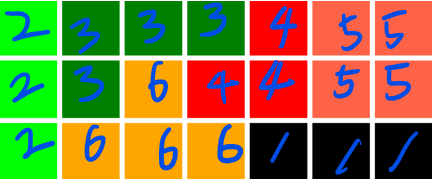 2 3 3 3 4 5 5
2 3 6 4 4 5 5
2 6 6 6 1 1 1